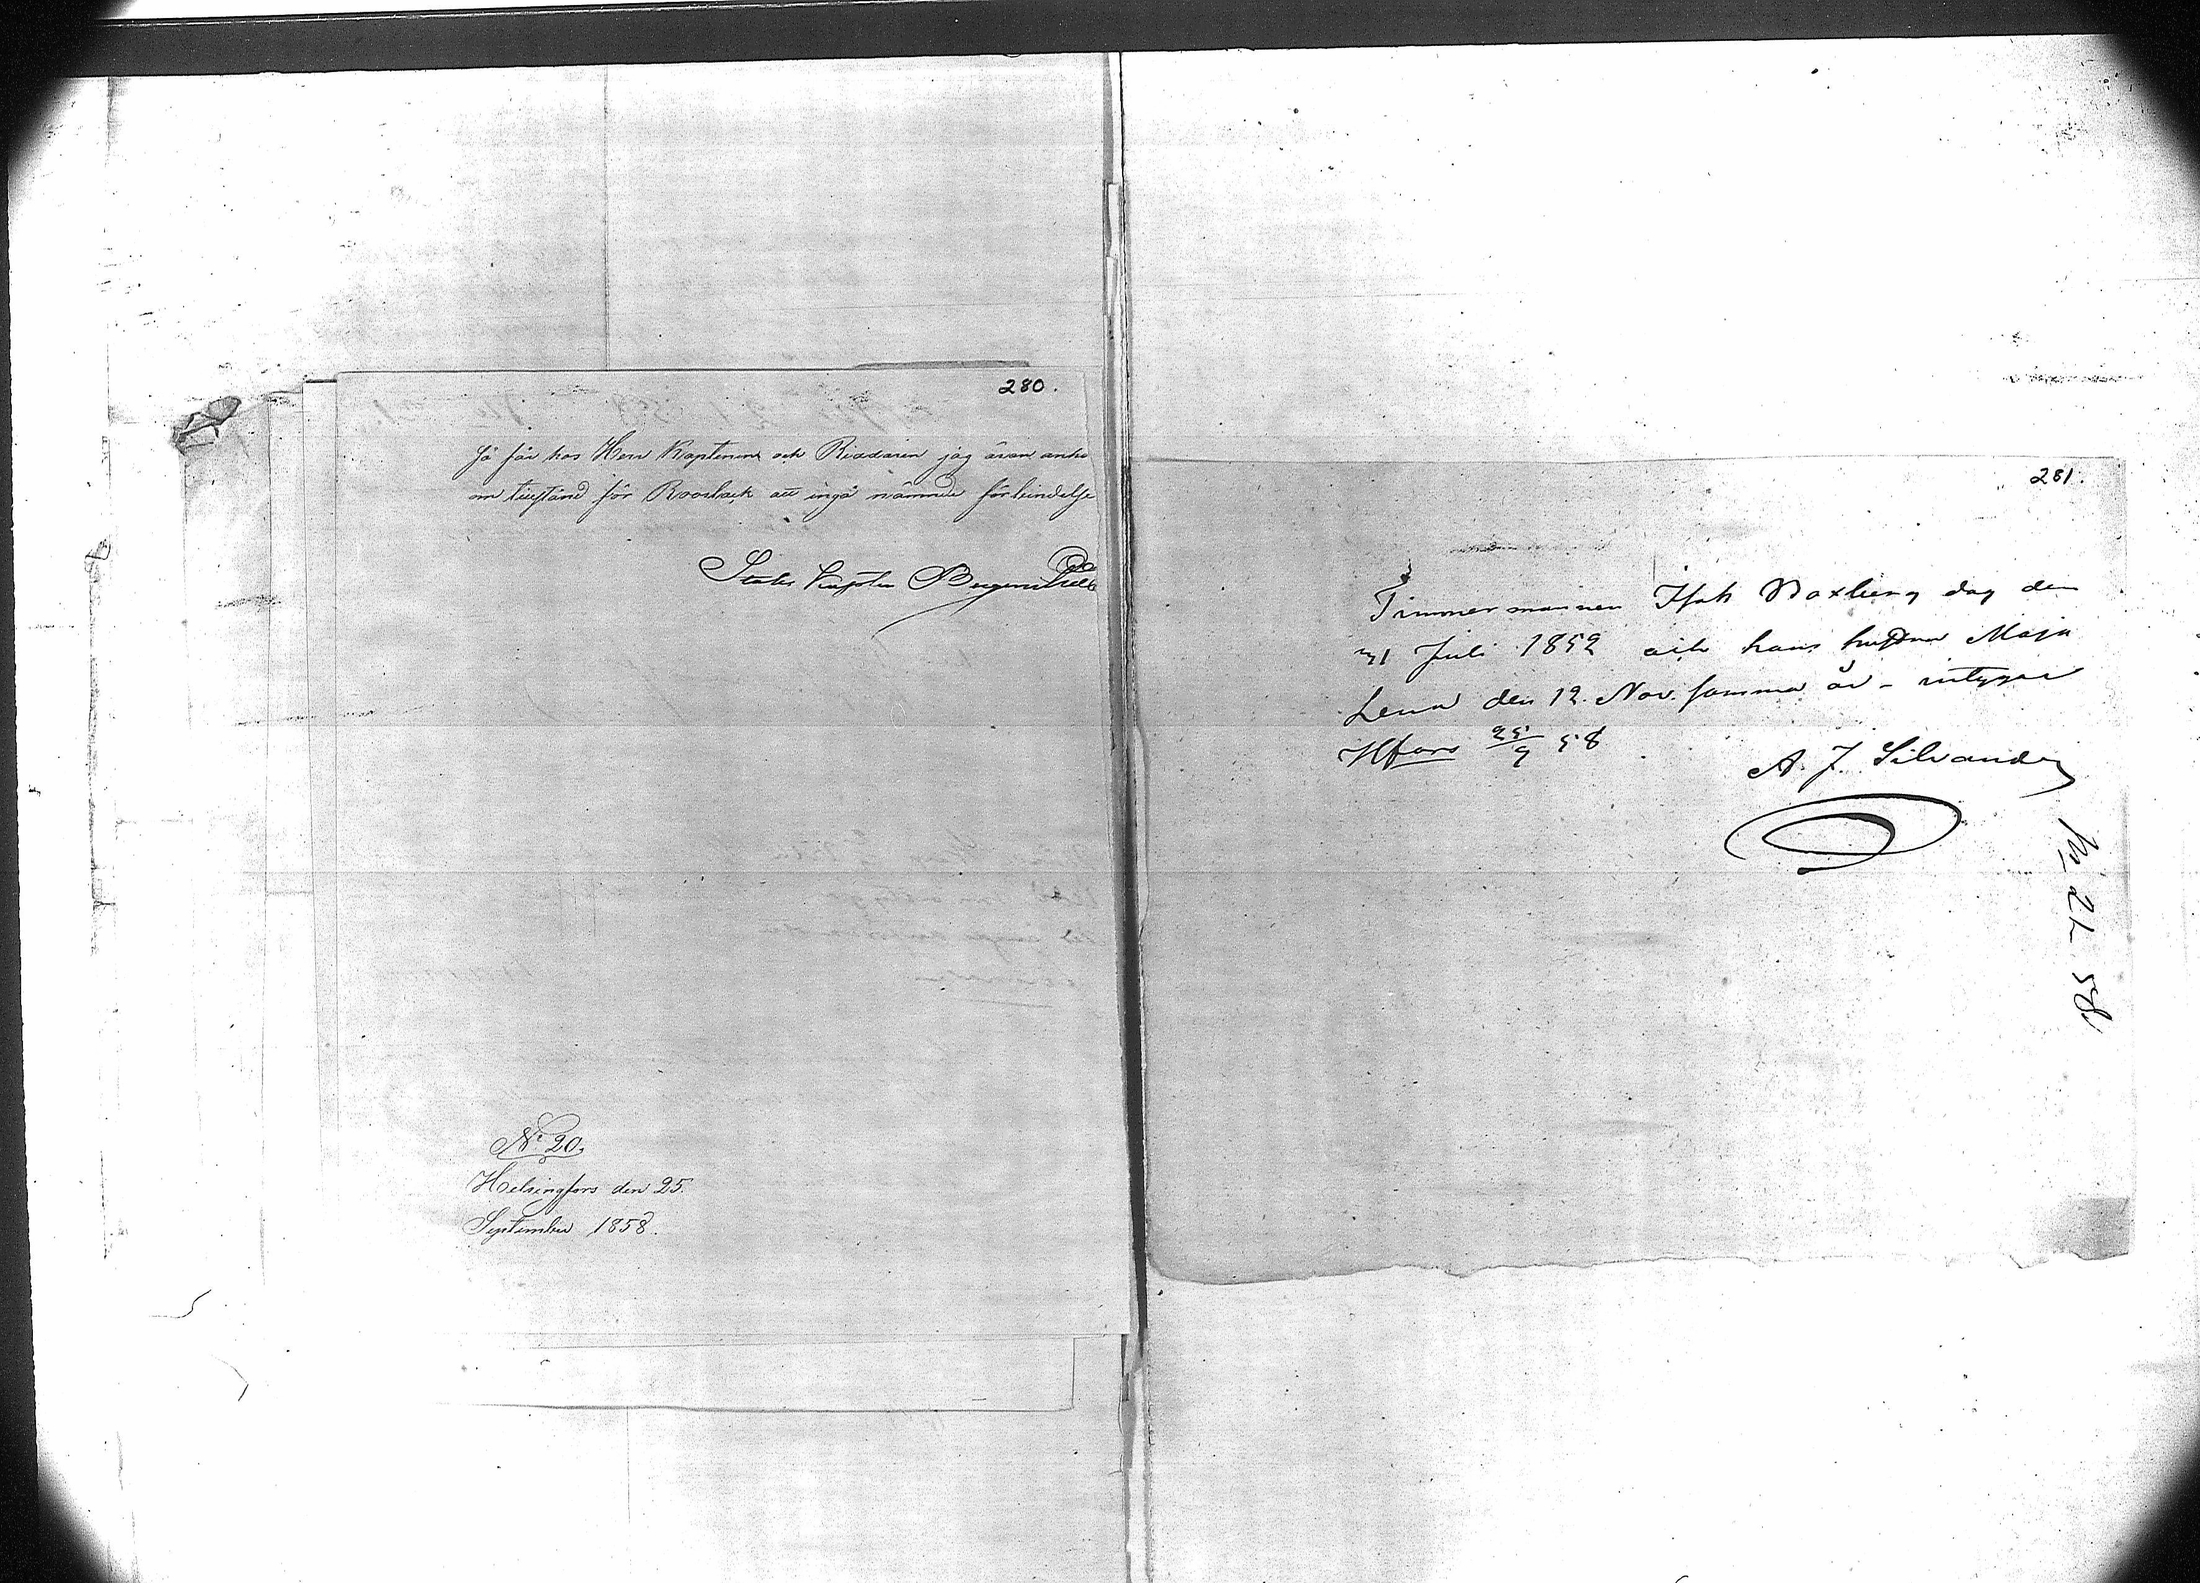 280.
så får hos Herr Kaptenen och Riddaren jag äran anho
om tillstånd för Roosbäck att ingå nämnde förbindelse
Stabs Kapten
N: 20.
Helsingfors den 25.
September 1858.
281.
Timmermannen Isak Waxberg dog den
31 Juli 1852 och hans hustru Maja
Lena den 12. Nov. samma år – intygar
Hfors 25/9 58
A. J. Silvander
No 21 58